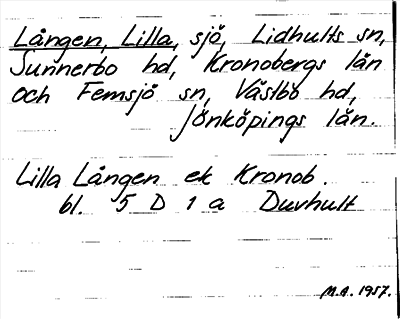 Lången, Lilla, sjö, Lidhults sn,
Sunnerbo hd, Kronobergs län
och Femsjö sn, Västbo hd,
Jönköpings län.
Lilla Lången ek Kronob.
bl. 5 D 1 a Duvhult
M.A. 1957.